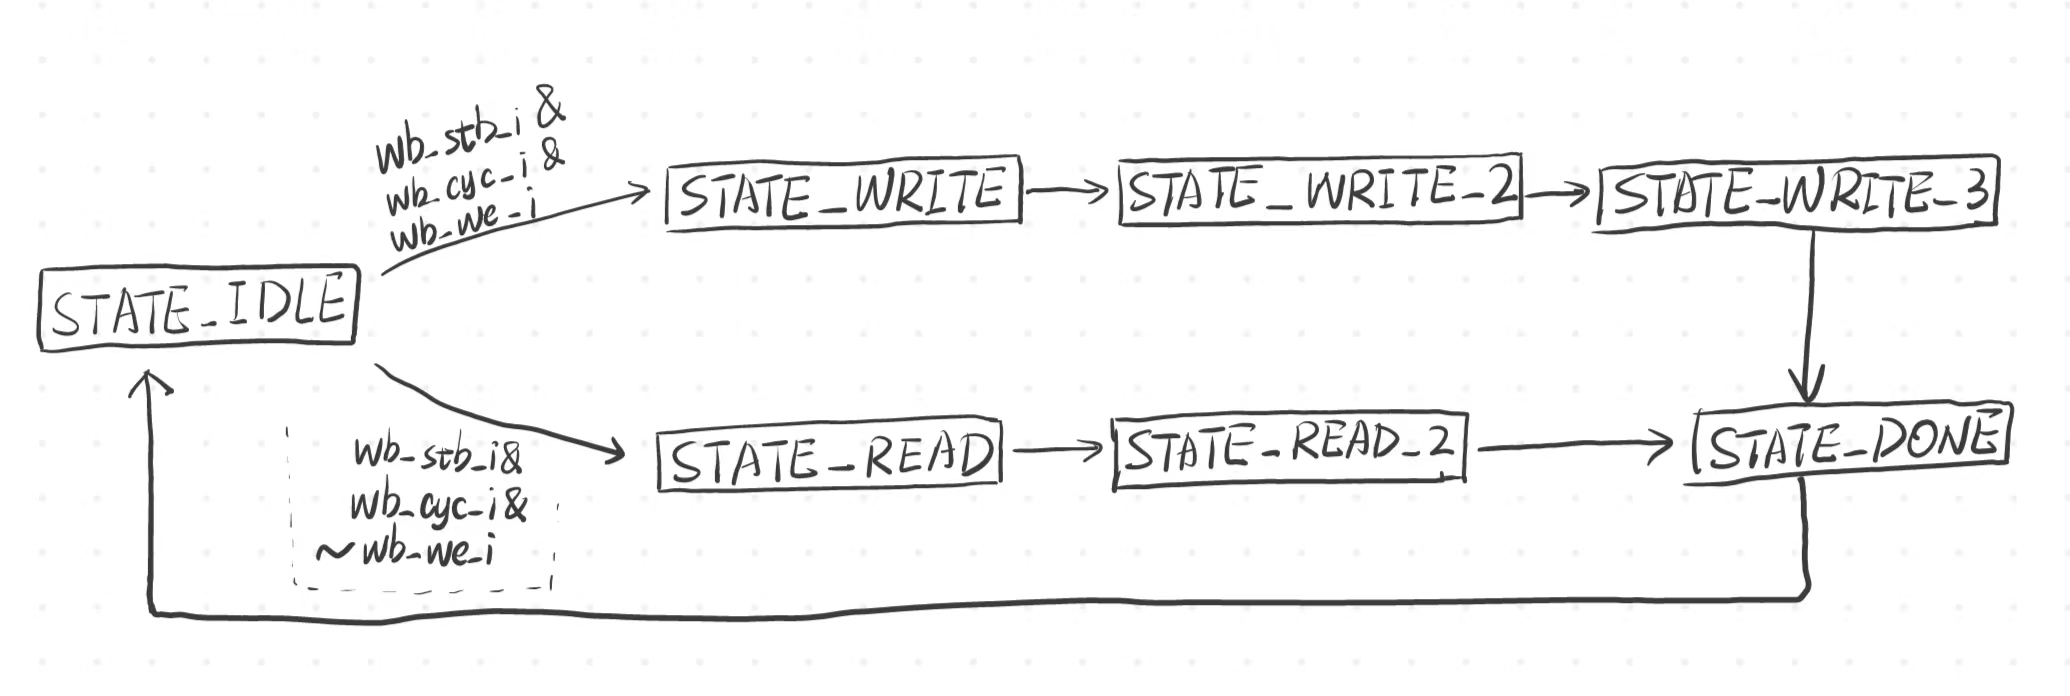 wb_stb_i &
wb_cyc_i &
wb_we_i
STATE_WRITE
STATE_WRITE_2
STATE_WRITE_3
STATE_IDLE
wb_stb_i &
wb_cyc_i &
~wb_we_i
STATE_READ
STATE_READ_2
STATE_DONE